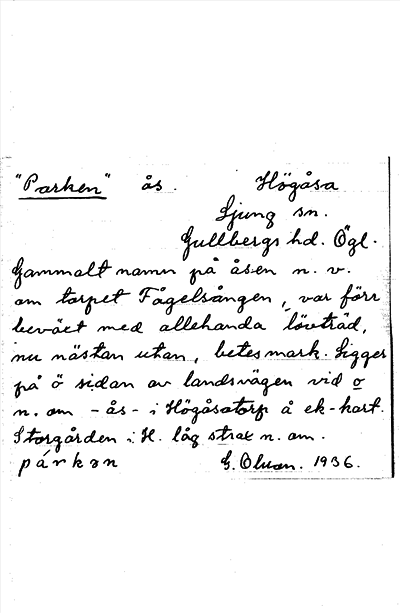 "Parken" ås. Högåsa
Ljung sn.
Gullbergs hd. Ögl.
Gammalt namn på åsen n. v.
om torpet Fågelsången, var förr
beväxt med allehanda lövträd,
nu nästan utan, betesmark. Ligger
på ö sidan av landsvägen vid o
n. om - ås - i Högåsatorp å ek-kart.
Storgården i H. låg strax n. om.
párkən G. Olson. 1936.